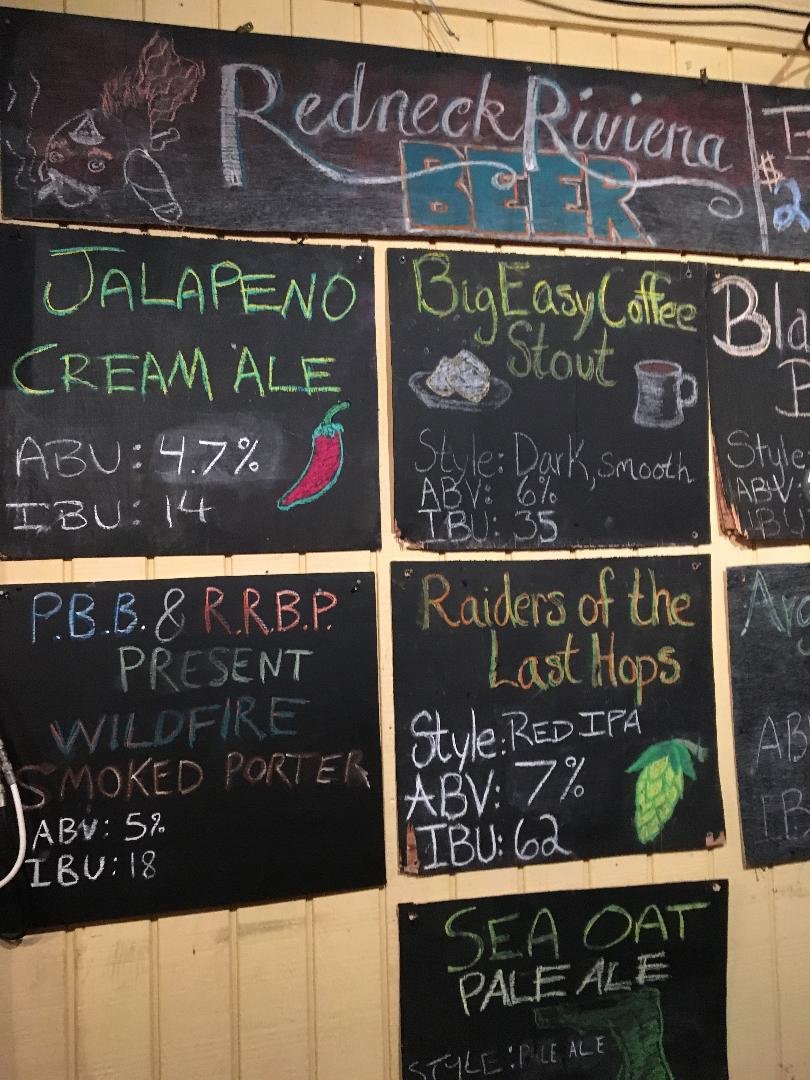 Redneck Riviera
BEER
$2
JALAPENO
CREAM ALE
ABV: 4.7%
IBU: 14
Big Easy Coffee
Stout
Style: Dark, smooth
ABV: 6%
IBU: 35
Style:
ABV:
IBU
P.B.B. & R.R.B.P.
PRESENT
WILDFIRE
SMOKED PORTER
ABV: 5%
IBU: 18
Raiders of the
Last Hops
Style: RED IPA
ABV: 7%
IBU: 62
SEA OAT
PALE ALE
STYLE: PALE ALE